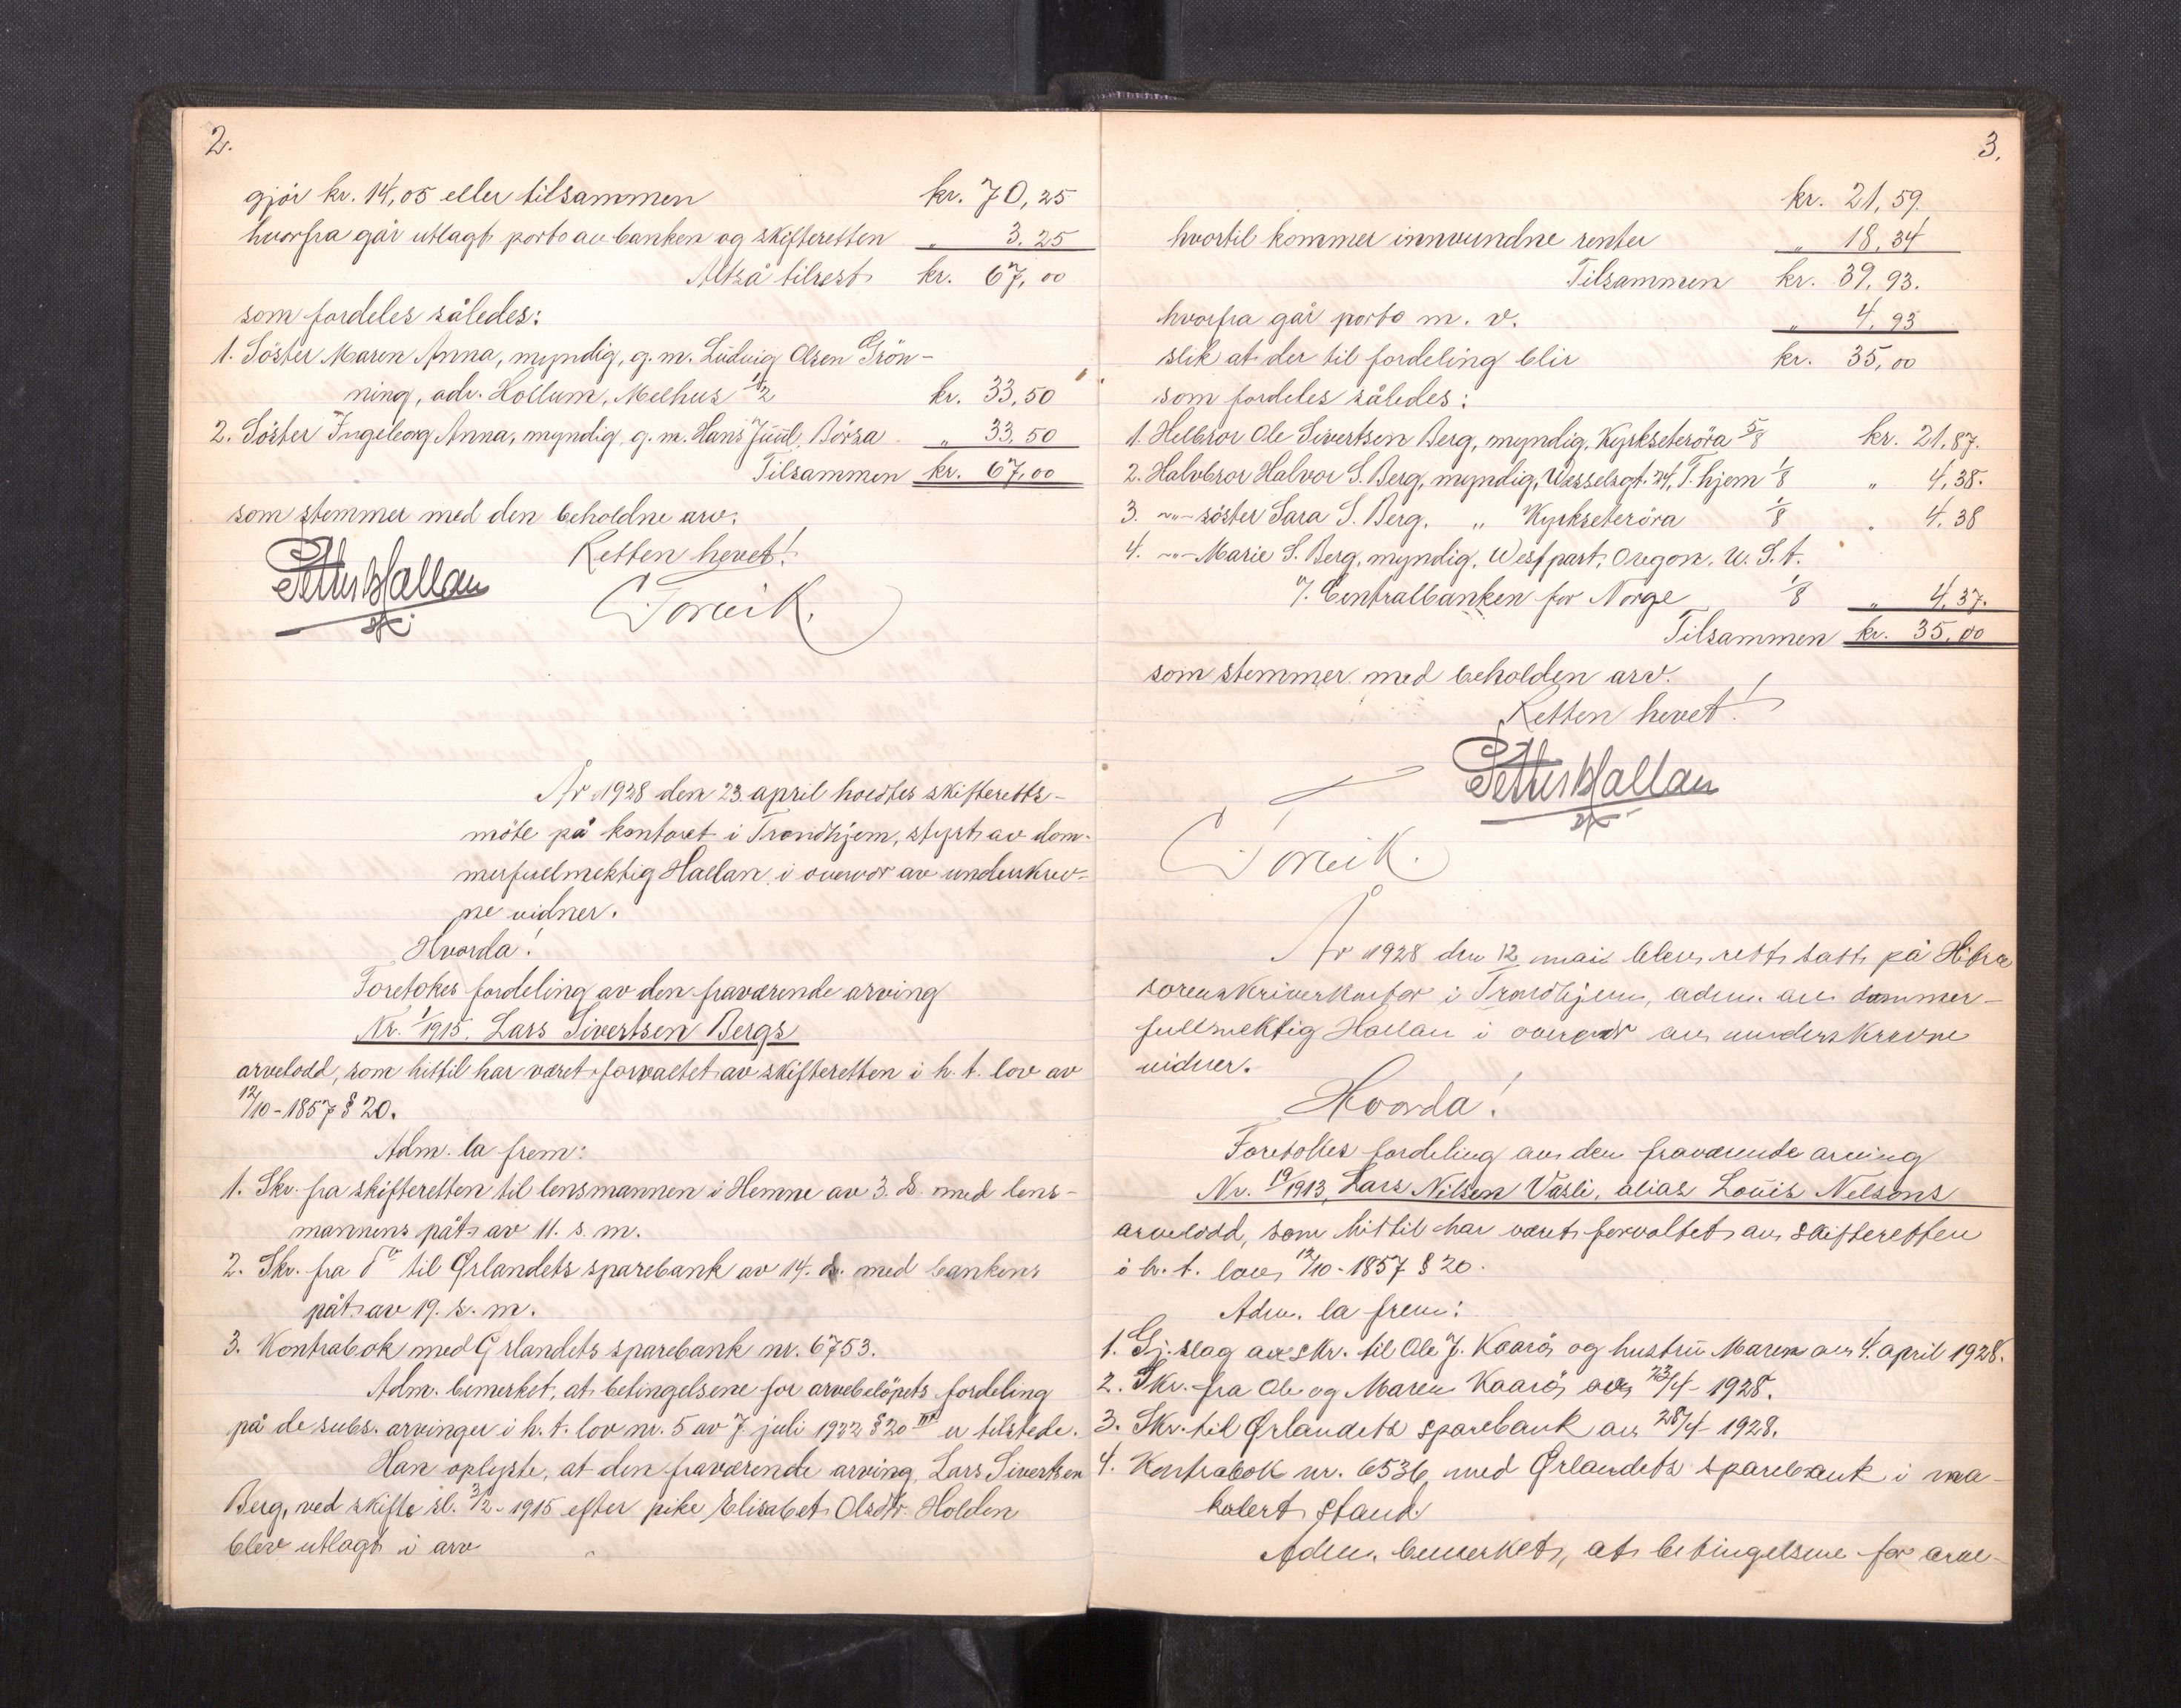 2.
gjör kr. 14,05 eller tilsammen kr. 70,25
hvorfra går utlagt porto av banken og skifteretten „ 3.25
Altså tilrest kr. 67,00
som fordeles således:
1. Söster Maren Anna, myndig, g. m. Ludvig Olsen Grön-
ning, adr. Hollum, Melhus 1/2 kr. 33,50
2. Söster Ingeborg Anna, myndig, g. m. Hans Juul, Börsa „ 33,50
Tilsammen kr. 67,00
som stemmer med den beholdne arv.
Retten hevet!
Petter Hallan
sf.
C. Torvik.
År 1928 den 23 april holdtes skifteretts-
möte på kontoret i Trondhjem, styrt av dom-
merfuelmektig Hallan i overvær av underskrev-
ne vidner.
Hvorda!
Foretokes fordeling av den fraværende arving
Nr. 1/1915, Lars Sivertsen Bergs
arvelodd, som hittil har været forvaltet av skifteretten i h. t. lov av
12/10-1857 § 20.
Adm. la frem:
1. Skr. fra skifteretten til lensmannen i Hemne av 3. ds. med lens-
mannens påt. av 11. s. m.
2. Skr. fra do til Ørlandets sparebank av 14. ds. med bankens
påt. av 19. s. m.
3. Kontrabok med Ørlandets sparebank nr. 6753.
Adm. bemerket, at betingelsene for arvebelöpets fordeling
på de subs. arvinger i h. t. lov nr. 5 av 7. juli 1922 § 20 er tilstede.
Han oplyste, at den fraværende arving, Lars Sivertsen
Berg, ved skifte sl. 3/2-1915 efter pike Elisabet Olsdtr. Holden
blev utlagt i arv
3.
kr. 21,59.
hvortil kommer innvundne renter „ 18,34
Tilsammen kr. 39,93.
hvorfra går porto m. v. „ 4,93
slik at der til fordeling blir kr. 35,00
som fordeles således:
1. Helbror Ole Sivertsen Berg, myndig, Kyrkseteröra 5/8 kr. 21,87.
2. Halvbror Halvor S. Berg, myndig, Wesselsgt. 24, T.hjem 1/8 „ 4,38.
3. -„- söster Sara S. Berg, „ Kyrkseteröra 1/8 „ 4,38
4. -„- Marie S. Berg, myndig, Westpart, Oregon, U. S. A.
%. Centralbanken for Norge 1/8 „ 4,37.
Tilsammen kr. 35,00
som stemmer med beholden arv.
Retten hevet!
Petter Hallan
sf.
C. Torvik.
År 1928 den 12 mai blev rett satt på Hitra
sorenskriverkontor i Trondhjem, adm. av dommer-
fullmektig Hallan i overvær av underskrevne
vidner.
Hvorda!
Foretokes fordeling av den fraværende arving
Nr. 19/1913, Lars Nilsen Vasli, alias Louis Nelsons
arvelodd, som hittil har været forvaltet av skifteretten
i h. t. lov 12/10-1857 § 20.
Adm. la frem:
1. Gj.slag av skr. til Ole J. Kaarö og hustru Maren av 4. april 1928.
2. Skr. fra Ole og Maren Kaarö av 23/4-1928.
3. Skr. til Ørlandets sparebank av 28/4-1928.
4. Kontrabok nr. 6536 med Ørlandets sparebank i ma-
kulert stand.
Adm. bemerket, at betingelsene for arve-